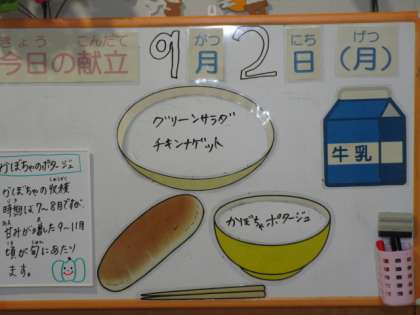 きょう こんだて がつ にち げつ
今日の献立 9月2日(月)
グリーンサラダ
チキンナゲット
牛乳
かぼちゃポタージュ
かぼちゃのポタージュ
かぼちゃの収穫
しゅうかく
時期は7~8月ですが
じき
甘みが増した9~11月
あま ま
頃が旬にあたり
ころ しゅん
ます。